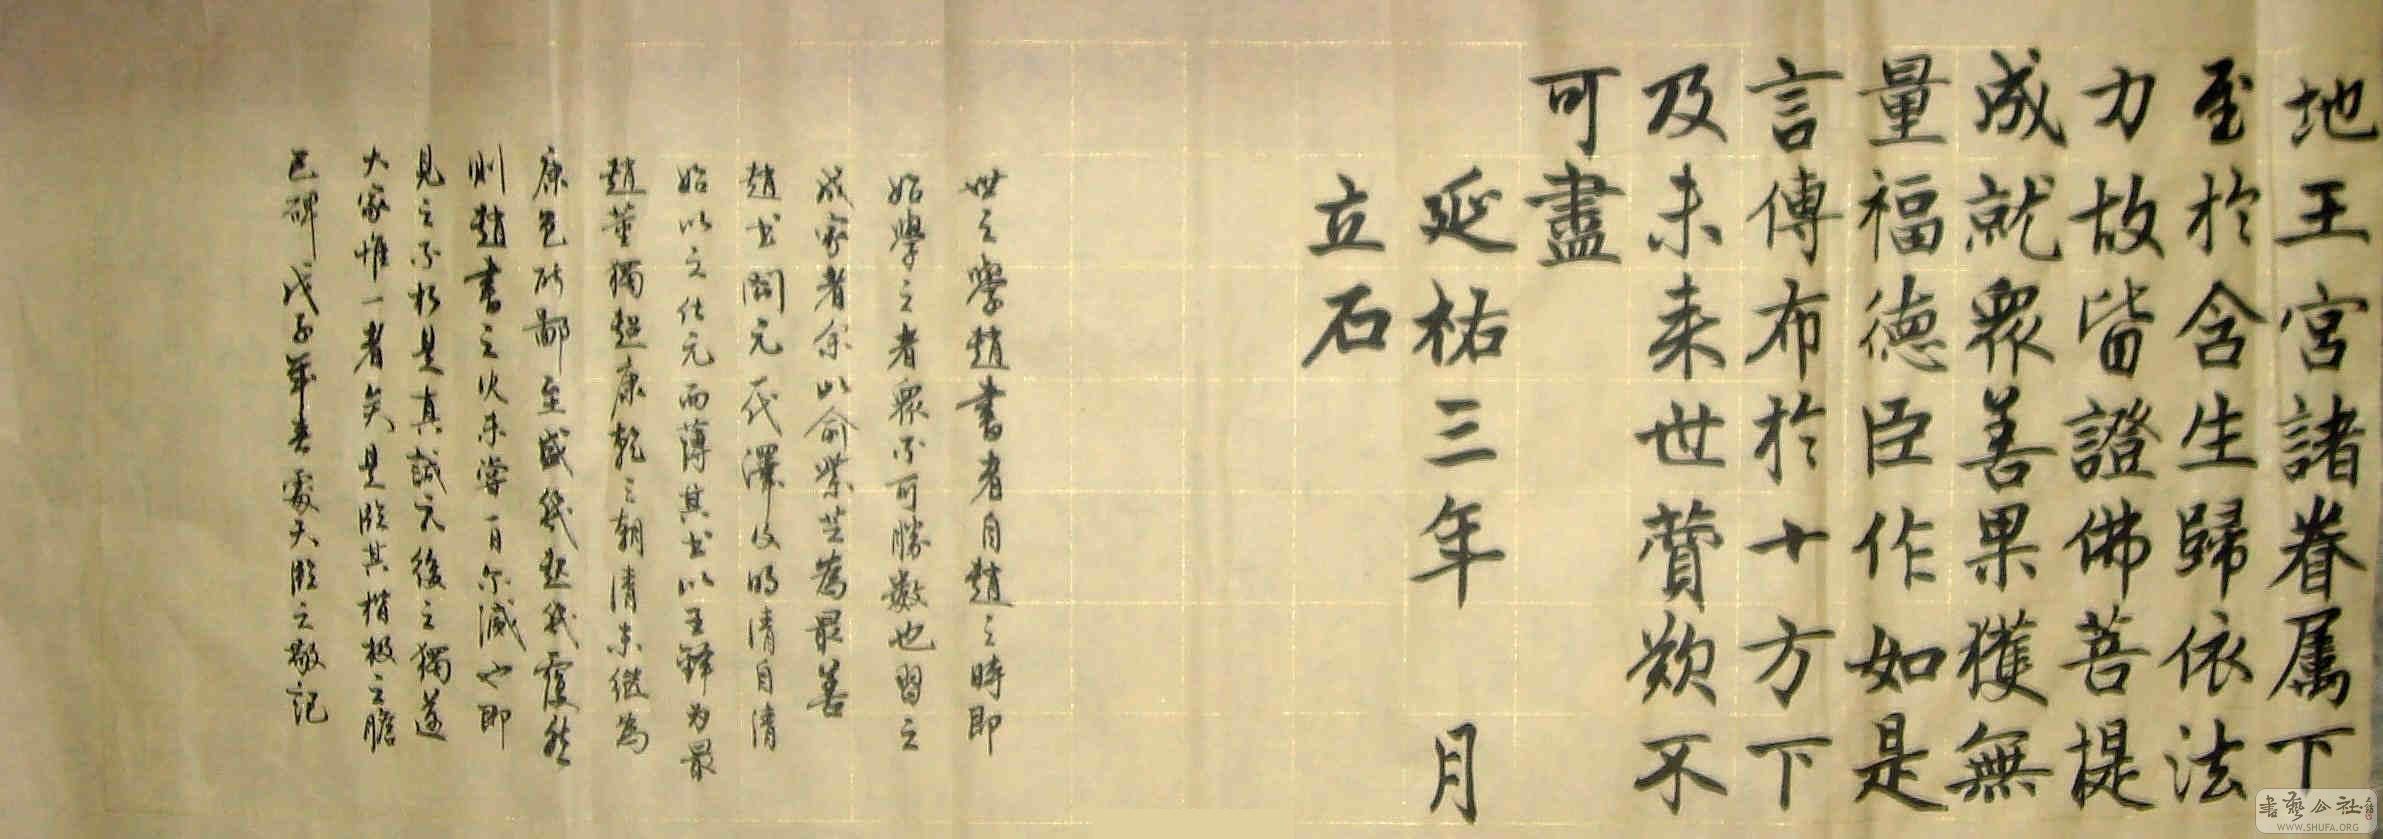 地王宮諸眷属下
至於含生歸依法
力故皆證佛菩提
成就眾善果獲無
量福德臣作如是
言傳布於十方下
及未来世賛歎不
可盡
延祐三年 月
立石
世之學趙書者自趙之時即
始學之者眾不可勝數也習之
成家者余以俞紫芝為最善
趙書開元代澤及明清自清
始以之仕元而薄其书以王鐸为最
趙董獨超康乾之朝清末繼為
康包所鄙至盛幾起幾覆然
則趙書之火未嘗一日尔滅也即
見之不朽是真誠元後之獨遂
大家惟一者矣是臨其楷极之膽
巴碑 戊子年春霁天臨之敬記
書藝公社
WWW.SHUFA.ORG